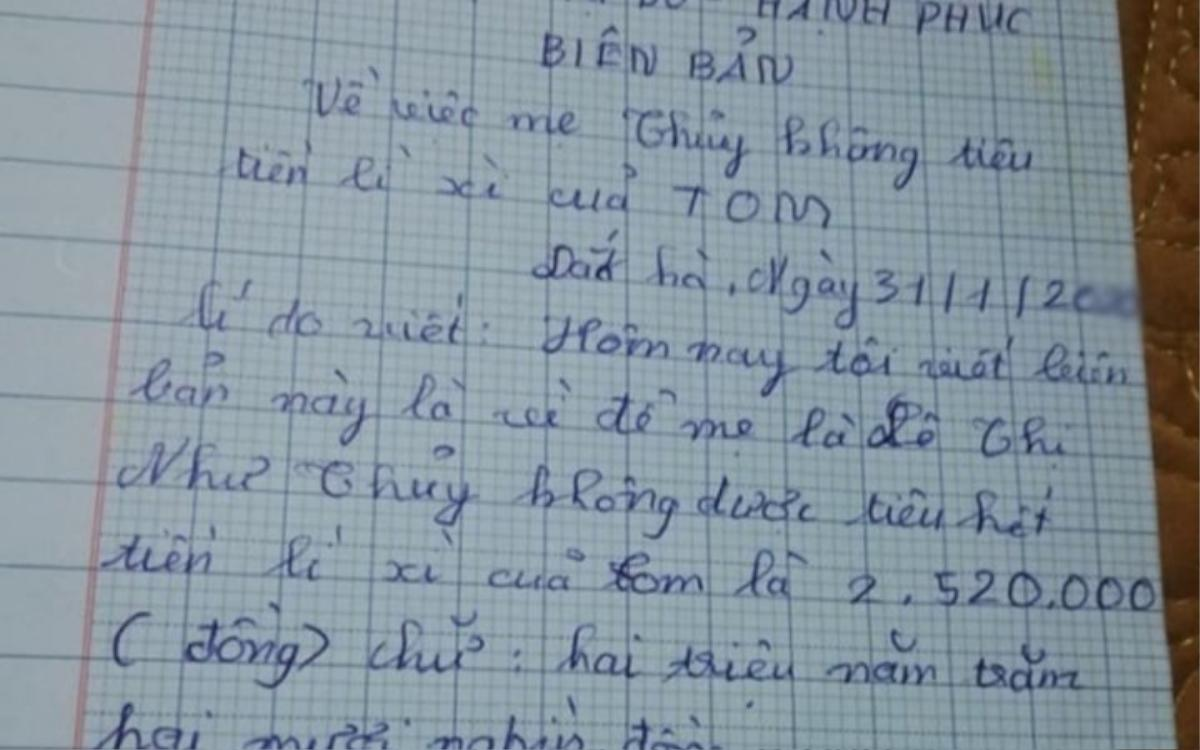 HẠNH PHÚC
BIÊN BẢN
Về việc mẹ Thủy không tiêu
tiền lì xì của TOM
Đắk hà, Ngày 31/1/20
lí do viết: Hôm nay tôi viết biên
bản này là vì để mẹ là Đỗ Thị
Như Thủy không được tiêu hết
tiền lì xì của tom là 2.520.000
(đồng) chữ: hai triệu năm trăm
hai mươi nghìn đồng